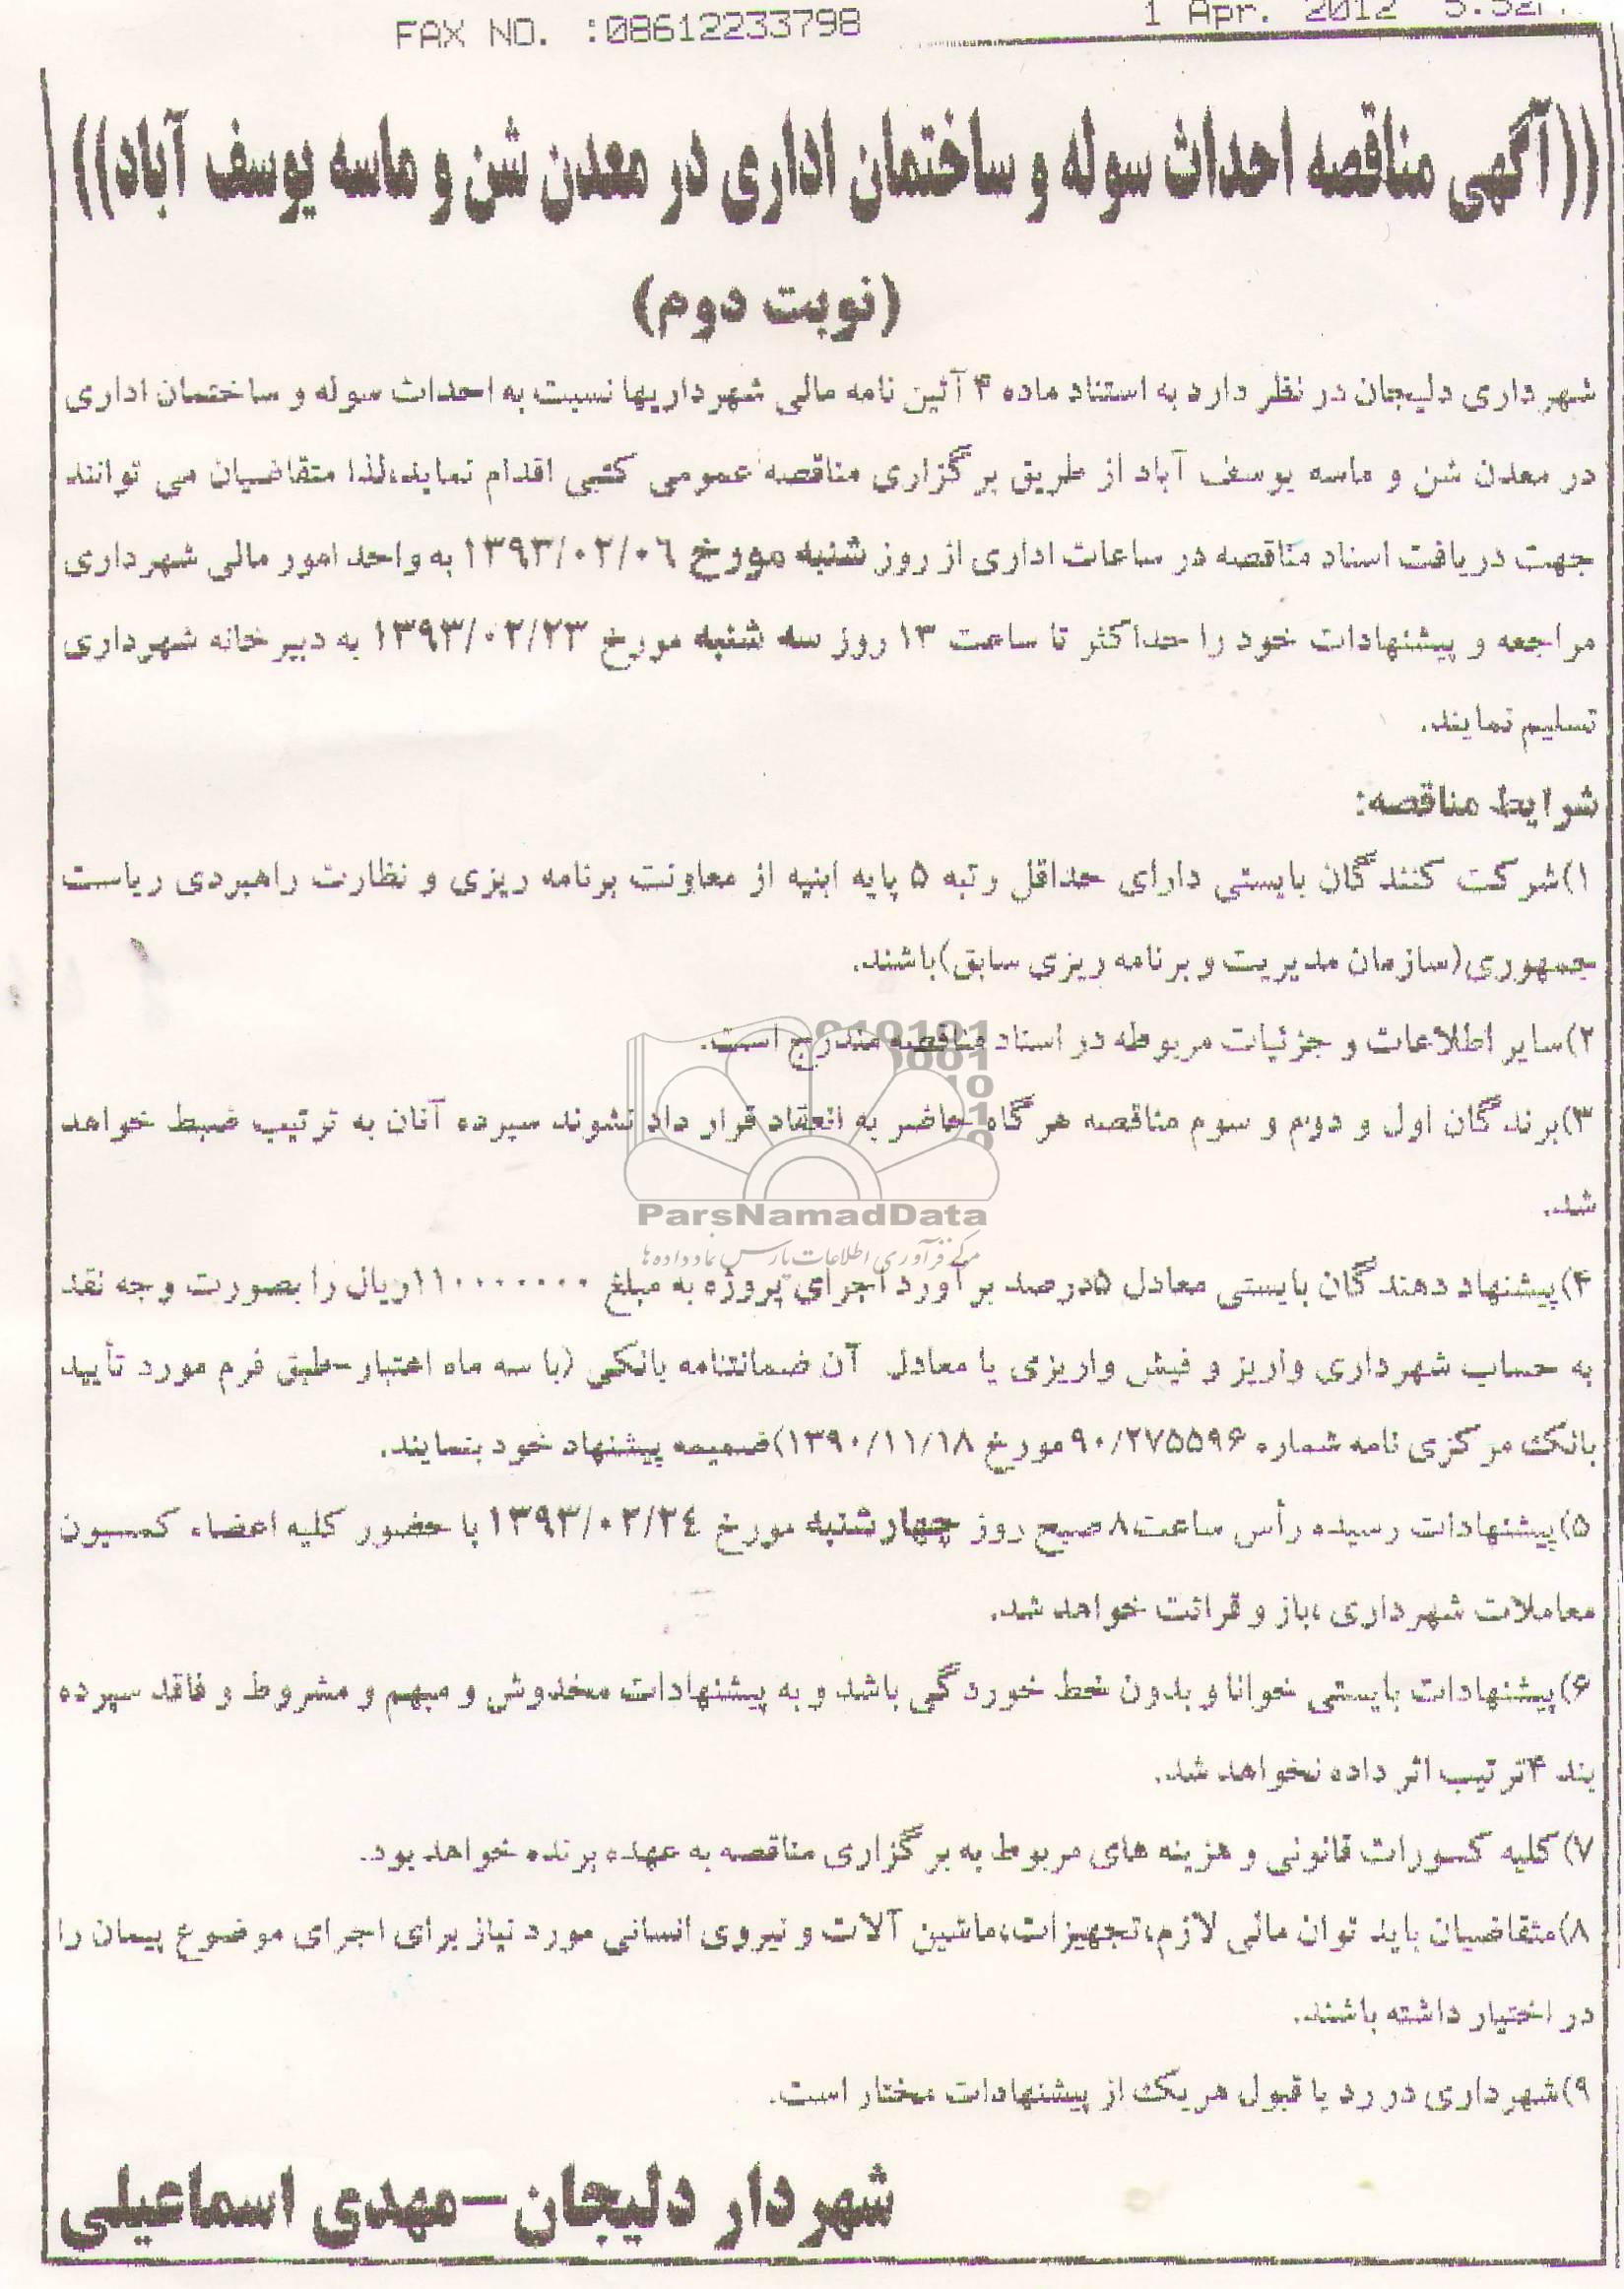 FAX NO. :08612233798
1 Apr. 2012
((آگهی مناقصه احداث سوله و ساختمان اداری در معدن شن و ماسه یوسف آباد))
(نوبت دوم)
شهرداری دلیجان در نظر دارد به استناد ماده ۴ آئین نامه مالی شهرداریها نسبت به احداث سوله و ساختمان اداری
در معدن شن و ماسه یوسف آباد از طریق برگزاری مناقصه عمومی کتبی اقدام نماید،لذا متقاضیان می توانند
جهت دریافت اسناد مناقصه در ساعات اداری از روز شنبه مورخ ۱۳۹۳/۰۲/۰۶ به واحد امور مالی شهرداری
مراجعه و پیشنهادات خود را حداکثر تا ساعت ۱۳ روز سه شنبه مورخ ۱۳۹۳/۰۲/۲۳ به دبیرخانه شهرداری
تسلیم نمایند.
شرایط مناقصه:
۱)شرکت کنندگان بایستی دارای حداقل رتبه ۵ پایه ابنیه از معاونت برنامه ریزی و نظارت راهبردی ریاست
جمهوری(سازمان مدیریت و برنامه ریزی سابق)باشند.
۲)سایر اطلاعات و جزئیات مربوطه در اسناد مناقصه مندرج است.
۳)برندگان اول و دوم و سوم مناقصه هرگاه حاضر به انعقاد قرار داد نشوند سپرده آنان به ترتیب ضبط خواهد
شد.
ParsNamadData
مرکز فرآوری اطلاعات پارس نماد داده ها
۴)پیشنهاد دهندگان بایستی معادل ۵درصد برآورد اجرای پروژه به مبلغ ۱۱۰۰۰۰۰۰۰ریال را بصورت وجه نقد
به حساب شهرداری واریز و فیش واریزی یا معادل آن ضمانتنامه بانکی (با سه ماه اعتبار-طبق فرم مورد تأیید
بانک مرکزی نامه شماره ۹۰/۲۷۵۵۹۶مورخ ۱۳۹۰/۱۱/۱۸)ضمیمه پیشنهاد خود بنمایند.
۵)پیشنهادات رسیده رأس ساعت۸صبح روز چهارشنبه مورخ ۱۳۹۳/۰۲/۲٤ با حضور کلیه اعضاء کمسیون
معاملات شهرداری ،باز و قرائت خواهد شد.
۶)پیشنهادات بایستی خوانا و بدون خط خوردگی باشد و به پیشنهادات مخدوش و مبهم و مشروط و فاقد سپرده
بند ۴ترتیب اثر داده نخواهد شد.
۷)کلیه کسورات قانونی و هزینه های مربوط به برگزاری مناقصه به عهده برنده خواهد بود.
۸)متقاضیان باید توان مالی لازم،تجهیزات،ماشین آلات و نیروی انسانی مورد نیاز برای اجرای موضوع پیمان را
در اختیار داشته باشند.
۹)شهرداری در رد یا قبول هریک از پیشنهادات مختار است.
شهردار دلیجان-مهدی اسماعیلی